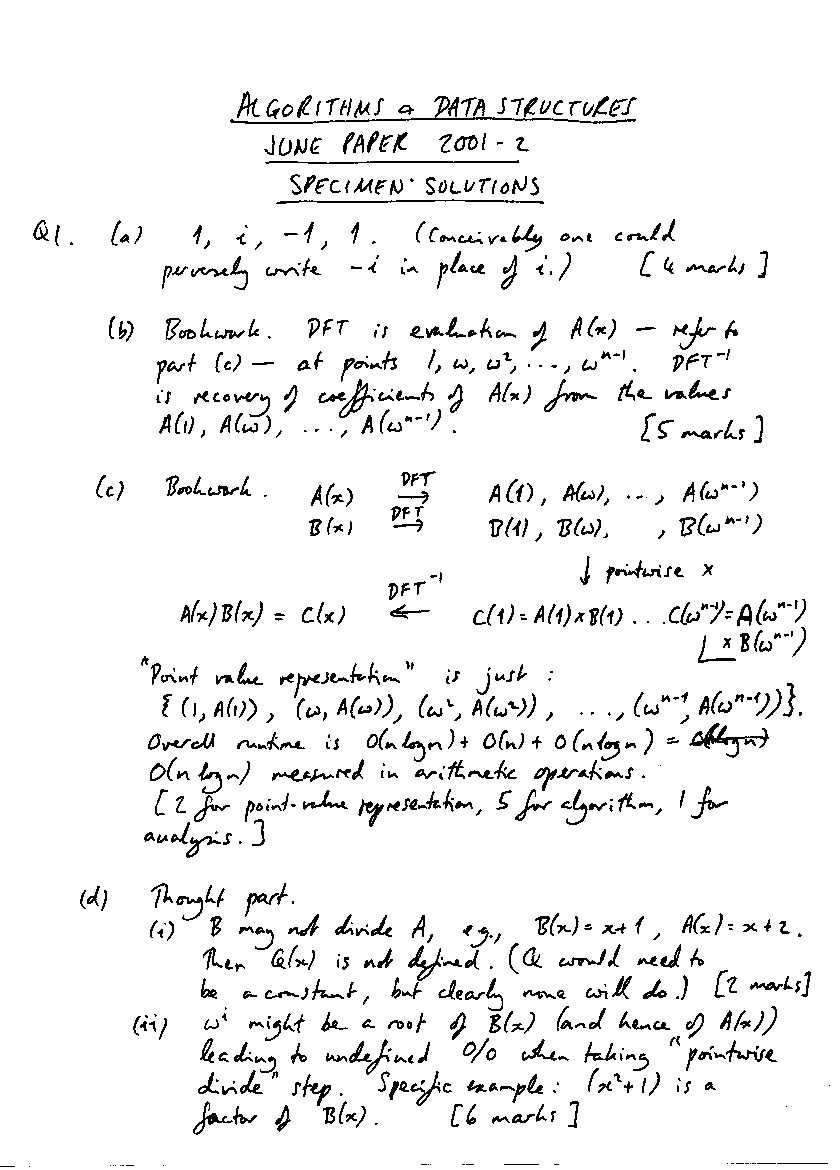 ALGORITHMS & DATA STRUCTURES
JUNE PAPER 2001-2
SPECIMEN SOLUTIONS
Q1. (a) 1, i, -1, 1. (Conceivably one could
perversely write -i in place of i.) [4 marks]
(b) Bookwork. DFT is evaluation of A(x) — refer to
part (c) — at points 1, ω, ω², ..., ωⁿ⁻¹. DFT⁻¹
is recovery of coefficients of A(x) from the values
A(1), A(ω), ..., A(ωⁿ⁻¹). [5 marks]
(c) Bookwork. A(x) DFT → A(1), A(ω), ..., A(ωⁿ⁻¹)
B(x) DFT → B(1), B(ω), , B(ωⁿ⁻¹)
↓ pointwise ×
A(x)B(x) = C(x) DFT⁻¹ ← C(1)=A(1)×B(1) ... C(ωⁿ⁻¹)=A(ωⁿ⁻¹)
×B(ωⁿ⁻¹)
"Point value representation" is just :
{(1, A(1)), (ω, A(ω)), (ω², A(ω²)), ..., (ωⁿ⁻¹, A(ωⁿ⁻¹))}.
Overall runtime is O(n log n) + O(n) + O(n log n) =
O(n log n) measured in arithmetic operations.
[2 for point-value representation, 5 for algorithm, 1 for
analysis.]
(d) Thought part.
(i) B may not divide A, e.g., B(x) = x+1, A(x) = x+2.
Then Q(x) is not defined. (Q would need to
be a constant, but clearly none will do.) [2 marks]
(ii) ωⁱ might be a root of B(x) (and hence of A(x))
leading to undefined 0/0 when taking "pointwise
divide" step. Specific example: (x²+1) is a
factor of B(x). [6 marks]